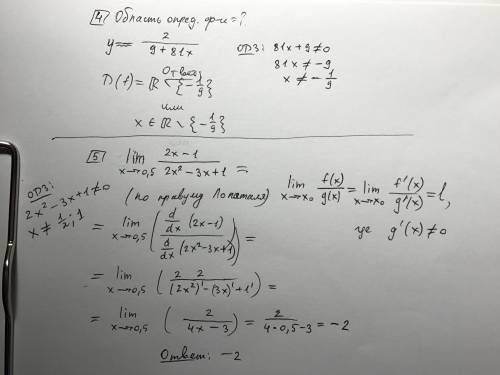 4 Область опред. ф-и = ?
y = 2 / (9 + 81x)
ОДЗ: 81x + 9 ≠ 0
81x ≠ -9
x ≠ -1/9
Ответ:
D(f) = ℝ \ {-1/9}
или
x ∈ ℝ \ {-1/9}
5 lim x→0,5 (2x - 1) / (2x² - 3x + 1) =
ОДЗ:
2x² - 3x + 1 ≠ 0
x ≠ 1/2; 1
(по правилу Лопиталя) lim x→x₀ f(x)/g(x) = lim x→x₀ f'(x)/g'(x) = l,
где g'(x) ≠ 0
= lim x→0,5 (d/dx (2x-1) / d/dx (2x²-3x+1)) =
= lim x→0,5 (2 2 / ((2x²)' - (3x)' + 1')) =
= lim x→0,5 (2 / (4x - 3)) = 2 / (4·0,5-3) = -2
Ответ: -2